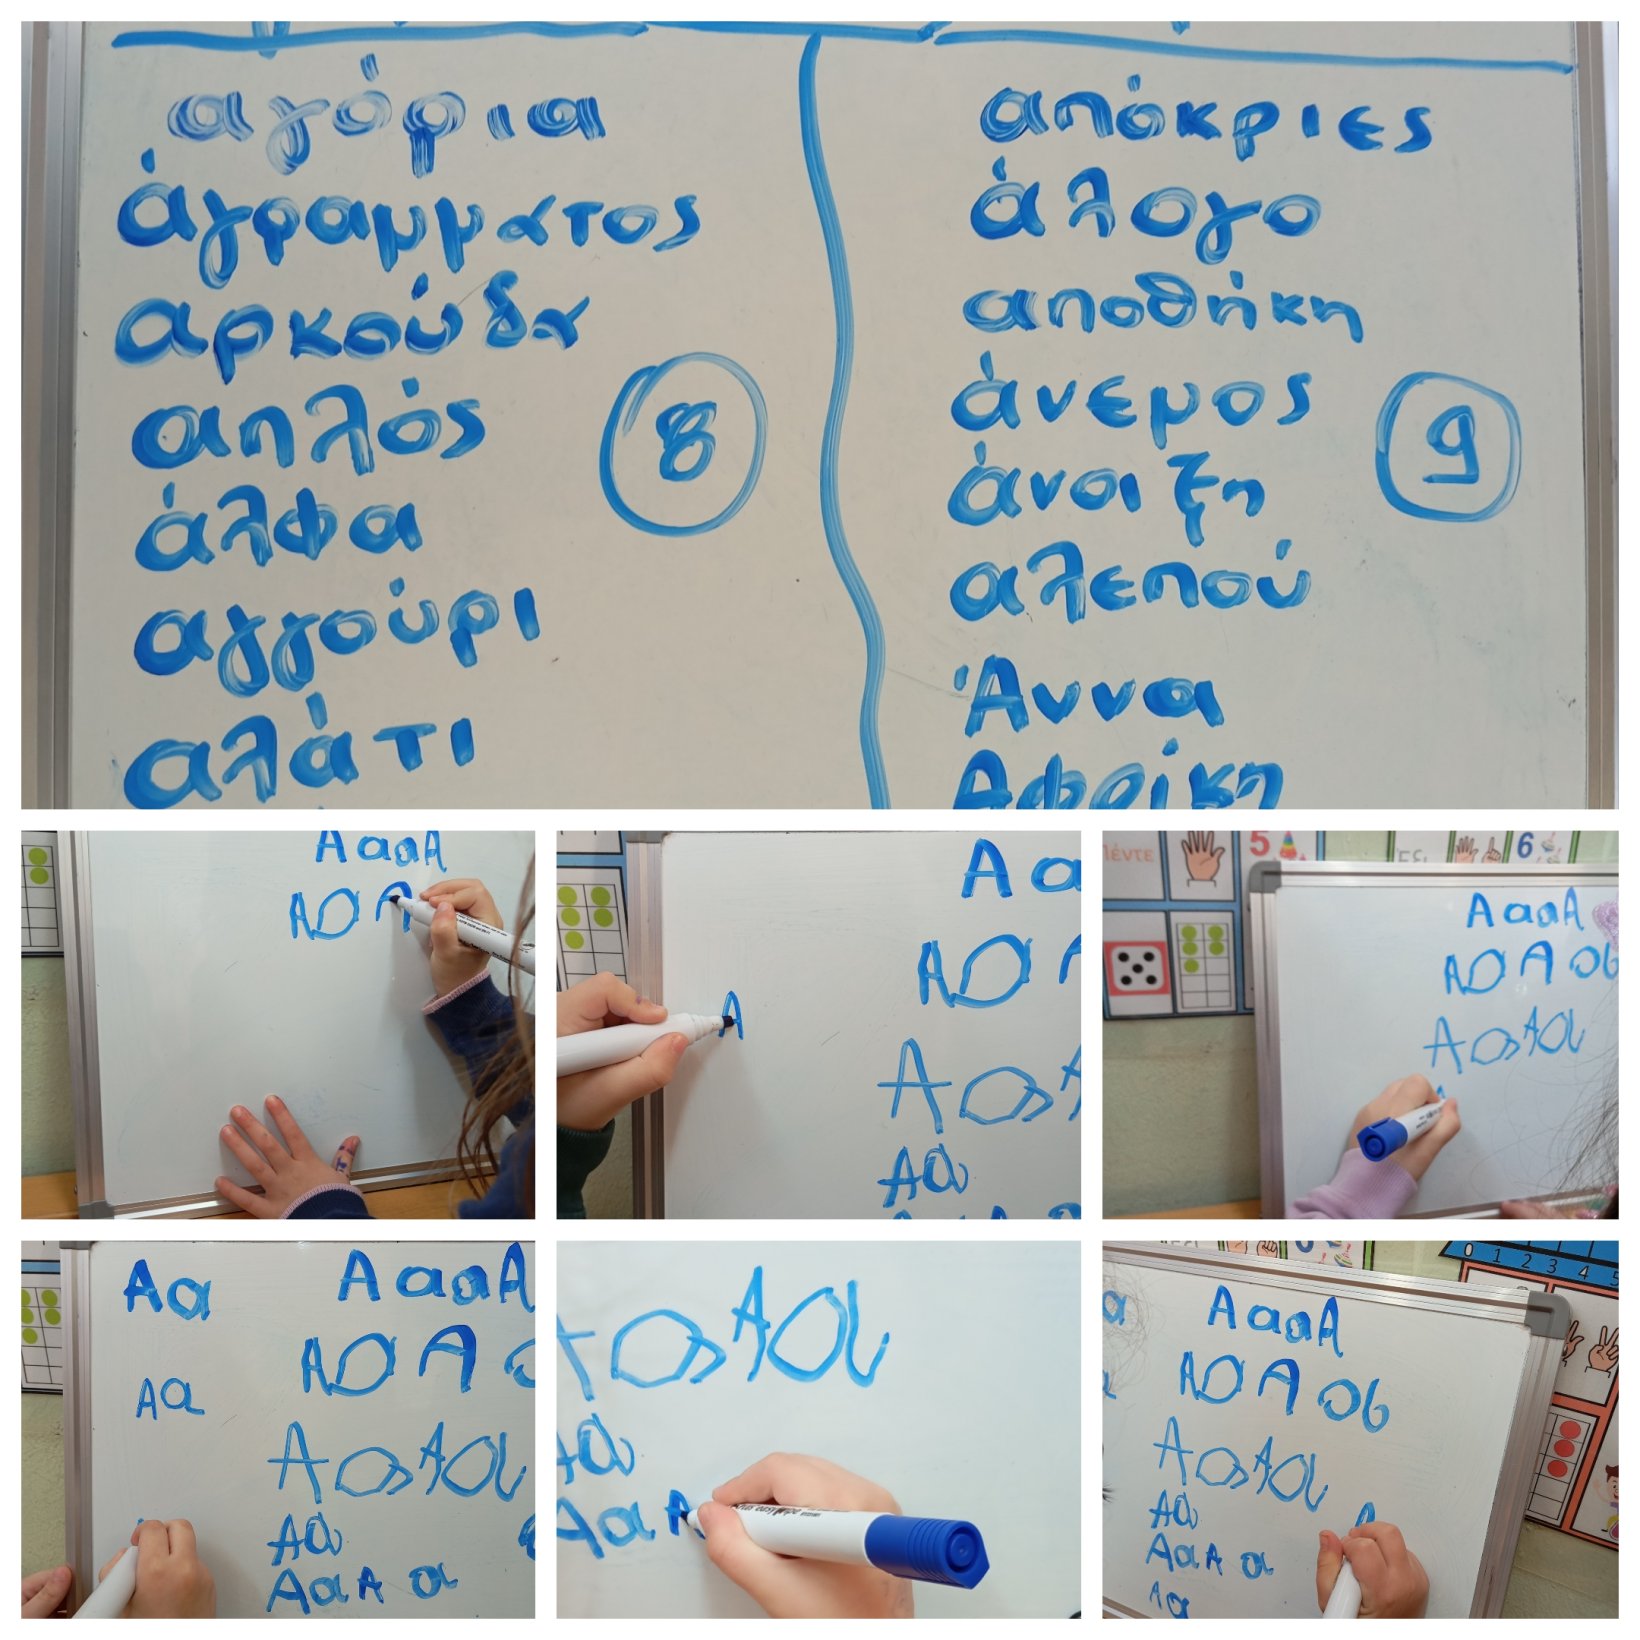 αγόρια
άγραμματος
αρκούδα
απλός
άλφα
αγγούρι
αλάτι
8
απόκριες
άλογο
αποθήκη
άνεμος
άνοιξη
αλεπού
Άννα
Αφρίκη
9
Α α α Α
Α α Α
Α α
Α α Α
Α α Α
Α α
Πέντε
5
6
Α α α Α
Α α Α α
Α α Α α
Α α
Α α
Α α α Α
Α α Α
Α α Α α
Α α
Α α Α α
Α α Α α
Α α
Α α Α
0 1 2 3 4 5
Α α α Α
Α α Α α
Α α Α α
Α α
Α α Α α
Α α
Α